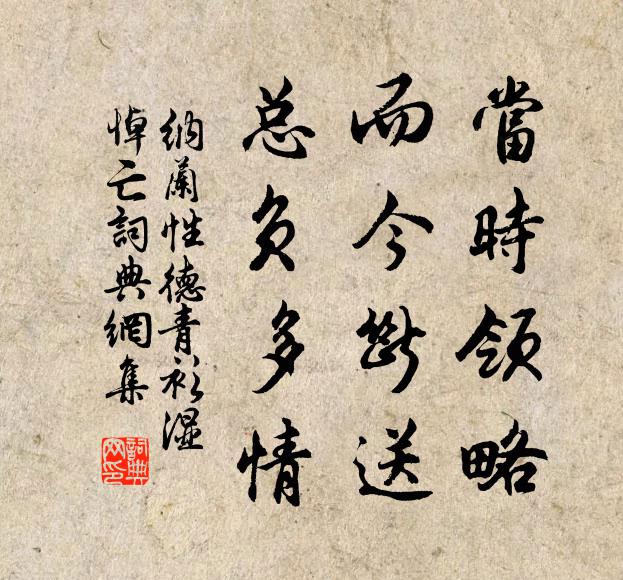 當時領略
而今斷送
总負多情
納蘭性德青衫濕
悼亡詞典網集
詞典網印